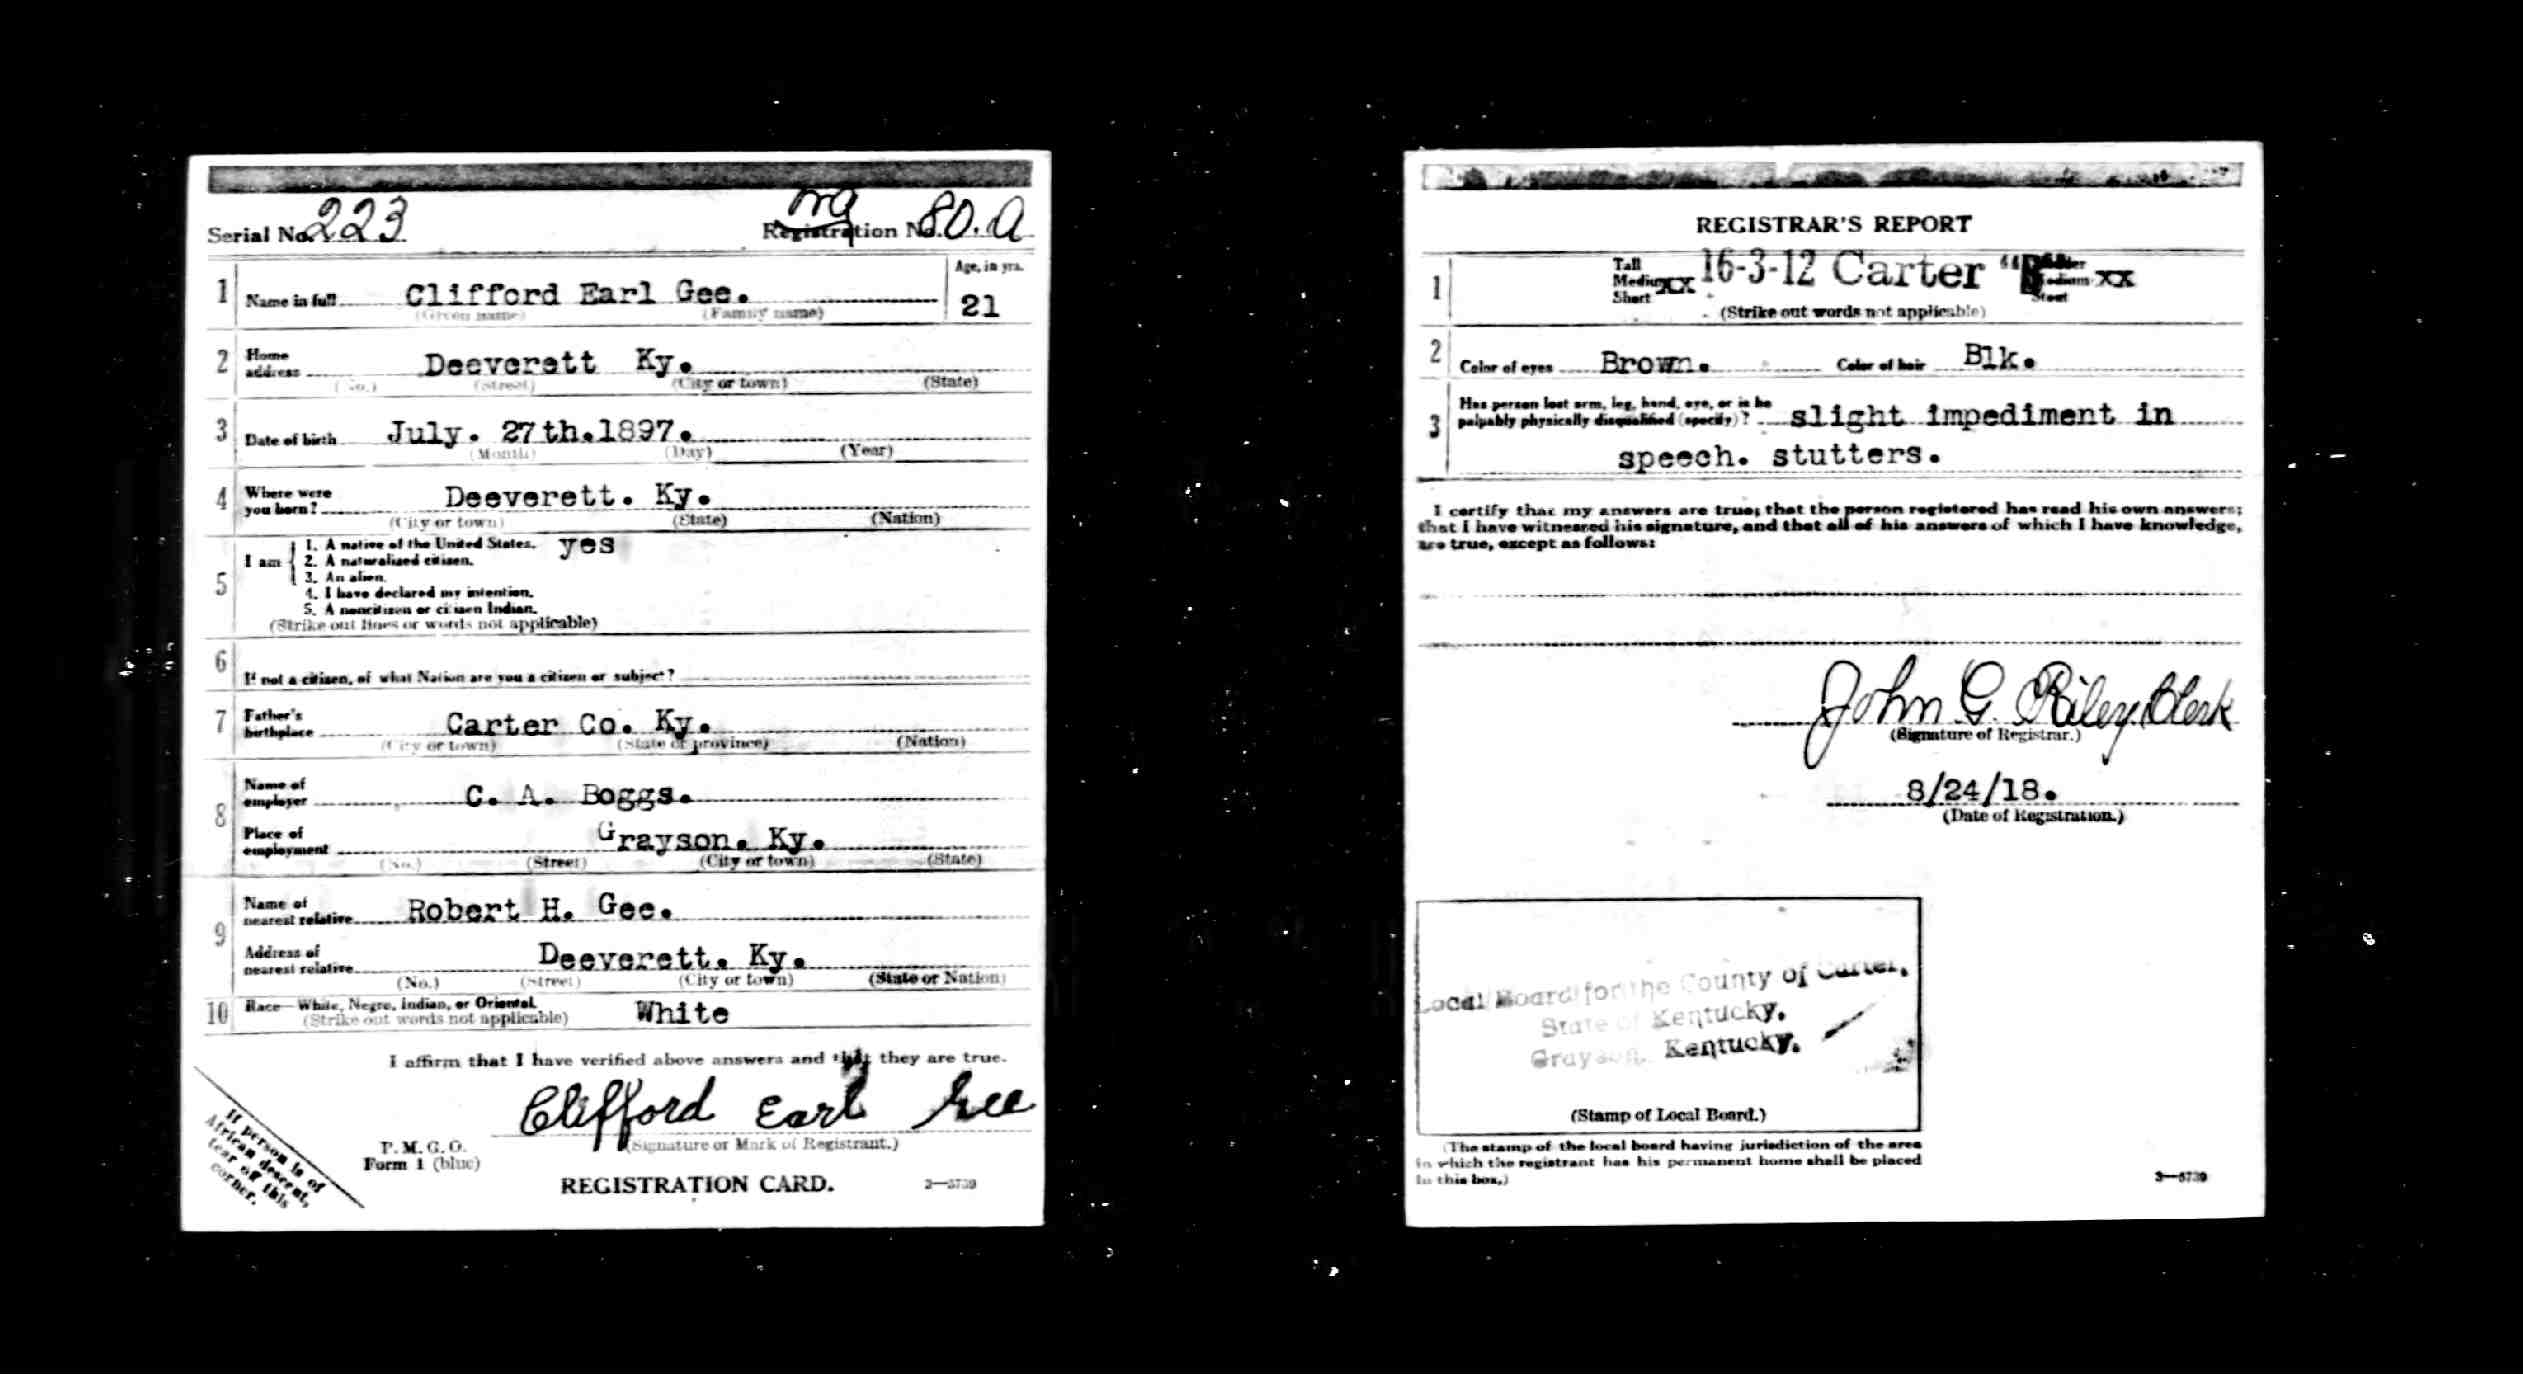 Serial No. 223 Registration No. 80. A
1 Name in full Clifford Earl Gee. Age, in yrs. 21
(Given name) (Family name)
2 Home address Deeverett Ky.
(No.) (Street) (City or town) (State)
3 Date of birth July. 27th.1897.
(Month) (Day) (Year)
4 Where were you born? Deeverett. Ky.
(City or town) (State) (Nation)
5 I am
1. A native of the United States. yes
2. A naturalized citizen.
3. An alien.
4. I have declared my intention.
5. A noncitizen or citizen Indian.
(Strike out lines or words not applicable)
6 If not a citizen, of what Nation are you a citizen or subject?
7 Father's birthplace Carter Co. Ky.
(City or town) (State or province) (Nation)
8 Name of employer C. A. Boggs.
Place of employment Grayson. Ky.
(No.) (Street) (City or town) (State)
9 Name of nearest relative Robert H. Gee.
Address of nearest relative Deeverett. Ky.
(No.) (Street) (City or town) (State or Nation)
10 Race—White, Negro, Indian, or Oriental. White
(Strike out words not applicable)
I affirm that I have verified above answers and that they are true.
Clifford Earl Gee
(Signature or Mark of Registrant.)
P. M. G. O.
Form 1 (blue)
REGISTRATION CARD. 3—5739
If person is of
African descent,
tear off this
corner.
REGISTRAR'S REPORT
1 Tall
Medium xx
Short
16-3-12 Carter "B
Medium xx
Stout
(Strike out words not applicable)
2 Color of eyes Brown. Color of hair Blk.
3 Has person lost arm, leg, hand, eye, or is he
palpably physically disqualified (specify)? slight impediment in
speech. stutters.
I certify that my answers are true; that the person registered has read his own answers;
that I have witnessed his signature, and that all of his answers of which I have knowledge,
are true, except as follows:
John G. Riley Clerk
(Signature of Registrar.)
8/24/18.
(Date of Registration.)
Local Board for the County of Carter,
State of Kentucky,
Grayson, Kentucky.
(Stamp of Local Board.)
(The stamp of the local board having jurisdiction of the area
in which the registrant has his permanent home shall be placed
in this box.)
3—5739